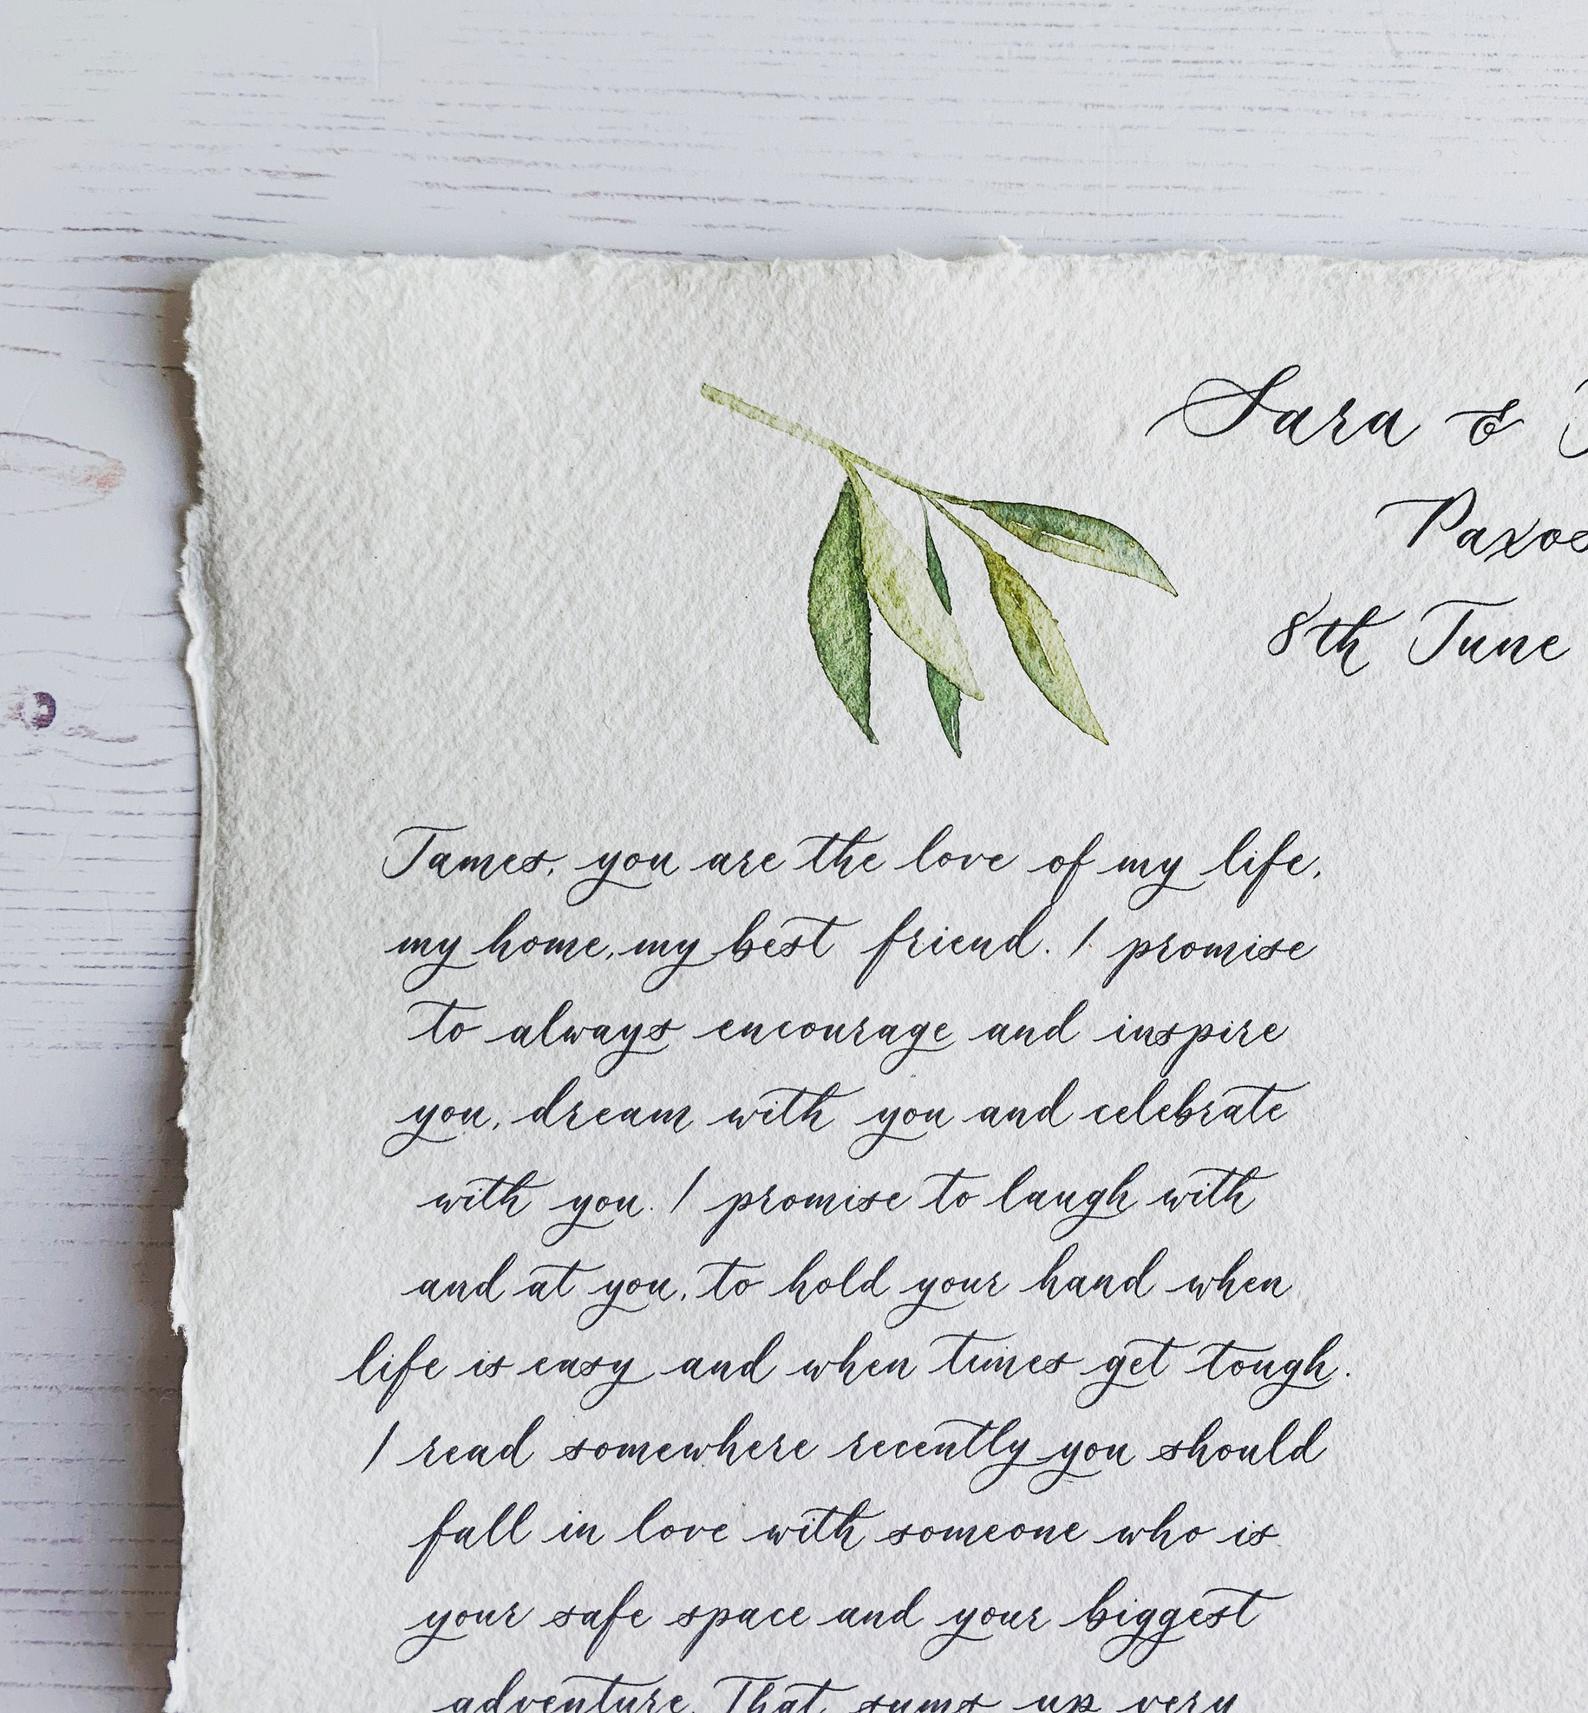 Sara &
Paxos
8th June
James, you are the love of my life,
my home, my best friend. I promise
to always encourage and inspire
you, dream with you and celebrate
with you. I promise to laugh with
and at you, to hold your hand when
life is easy and when times get tough.
I read somewhere recently you should
fall in love with someone who is
your safe space and your biggest
adventure. That sums up very